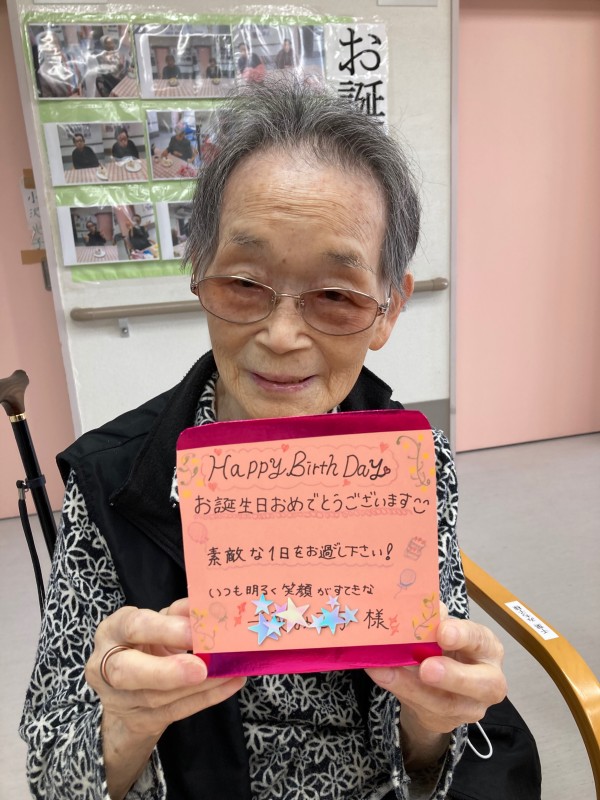 お誕
Happy Birth Day
お誕生日おめでとうございます
素敵な1日をお過し下さい!
いつも明るく笑顔がすてきな
様